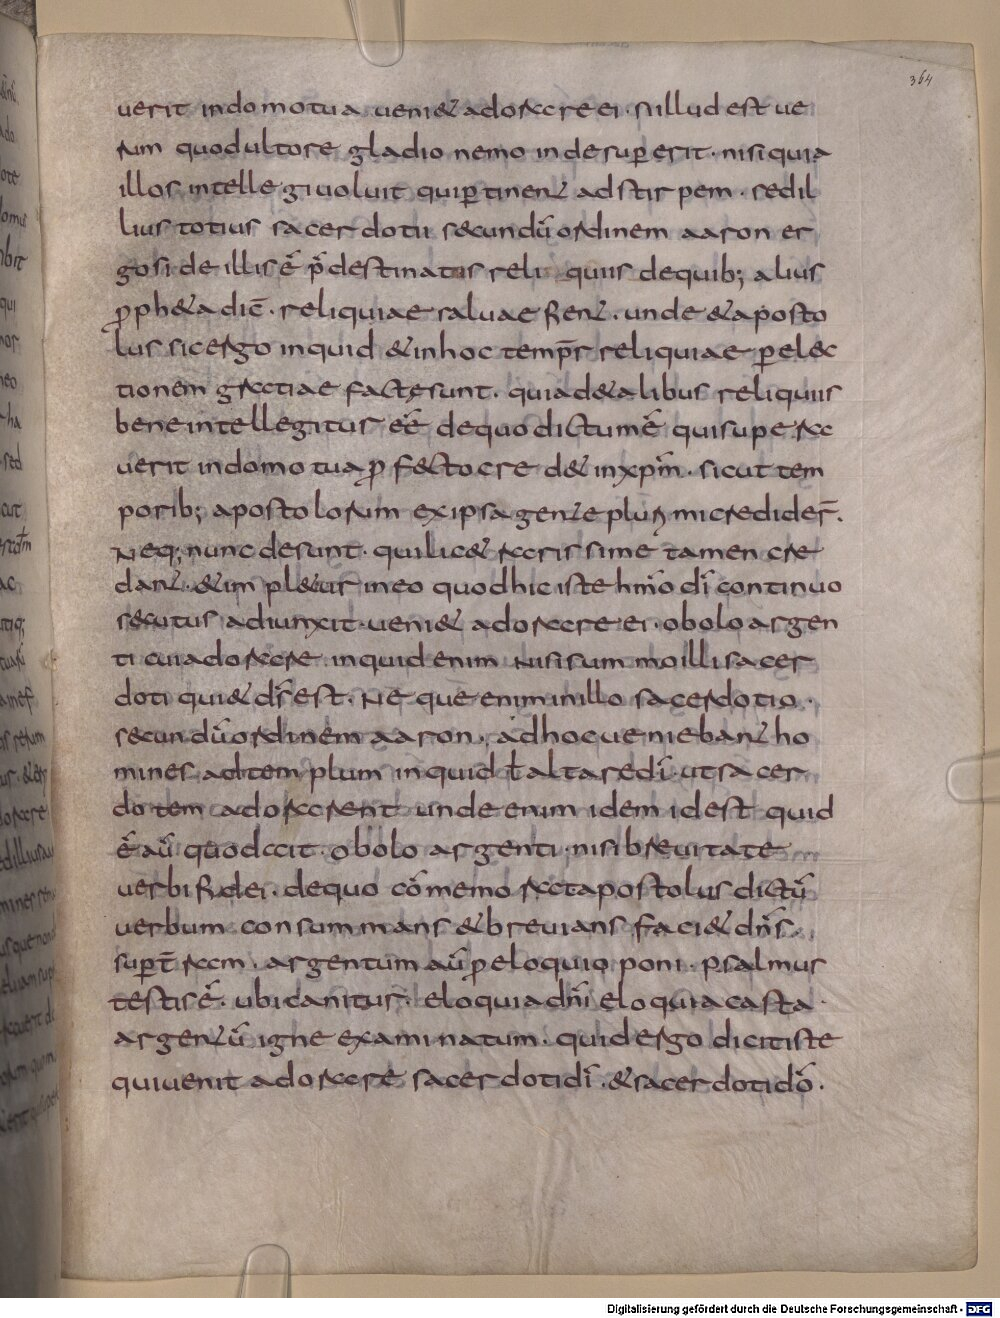 364
uerit in domo tua ueni& adorare ei. Si illud est ue
rum quod ultore gladio nemo inde supererit. nisi quia
illos intellegi uoluit qui ꝑtinent ad stirpem. sed il
lius totius sacerdotii secundū ordinem aaron er
go si de illis ē p̄destinatis reliquiis de quib; alius
ꝓph&a dic̄. reliquiae saluae fient. unde & aposto
lus sic ergo inquid & in hoc temp̄r reliquiae ꝑ elec
tionem gratiae factę sunt. quia de talibus reliquiis
bene intellegitur eē de quo dictum ē qui supera
uerit in domo tua ꝓfecto cre d& in xp̄m. sicut tem
porib; apostolorum ex ipsa gente plurimi credider̄.
Neq; nunc desunt. qui lic& rarissime tamen cre
dant. & impl&ur in eo quod hic iste hōmo dī continuo
secutus adiunxit. ueni& adorare ei. obolo argen
ti cui adorare inquid enim nisi summo illi sacer
doti qui & dr̄ est. Neque enim in illo sacerdotio.
secundū ordinem aaron. ad hoc ueniebant ho
mines ad templum inquid ƚ altare dī. ut sacer
dotem adorarent unde enim idem id est quid
ē aū quod ccit. obolo argenti. nisi breuitate
uerbi fidei. de quo cōmemorat apostolus dictū
uerbum consummans & breuians faci& dn̄s.
suꝑ t̄ram. argentum aū ꝓ eloquio poni. psalmus
testis ē. ubi canitur. eloquia dn̄i eloquia casta.
argentū igne examinatum. quid ergo dicit iste
qui uenit adorare sacerdoti dī. & sacerdoti dō.
Digitalisierung gefördert durch die Deutsche Forschungsgemeinschaft - DFG